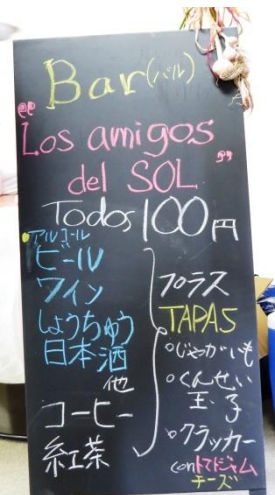 Bar(バル)
"Los amigos
del SOL"
Todos 100円
アルコール
ビール
ワイン
しょうちゅう
日本酒
他
コーヒー
紅茶
プラス
TAPAS
○じゃがいも
○くんせい
玉子
○クラッカー
con トマトジャム
チーズ